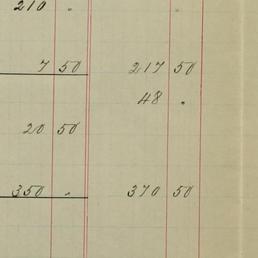 210 "
7 50 217 50
48 "
20 50
350 " 370 50